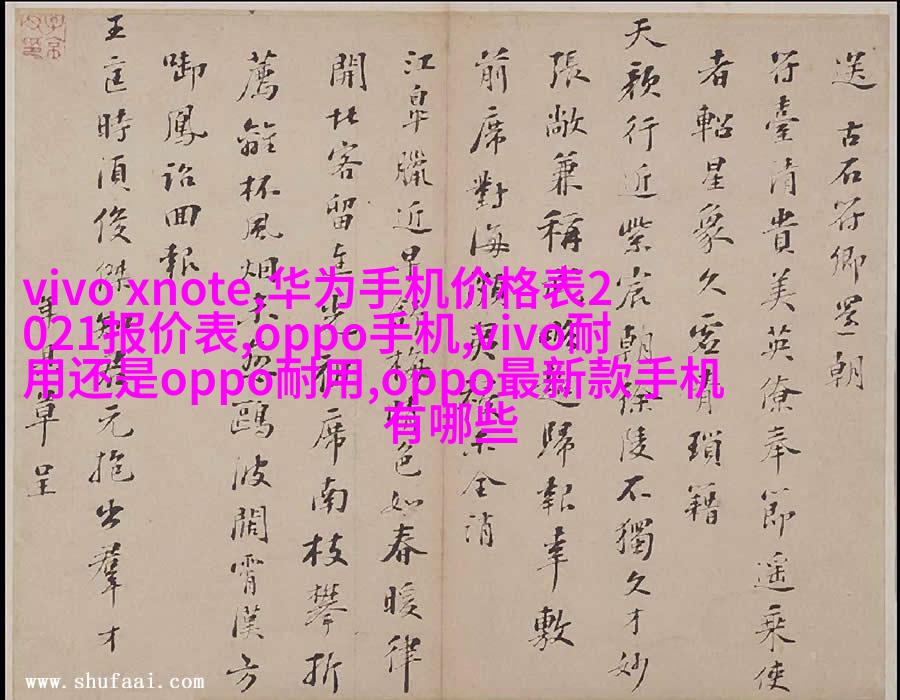 送 古石符卿還朝
符臺清貴美英僚奉節遥乘使
者軺星象久虚青瑣籍
天顔行近紫宸朝徐陵不獨久才妙
張敞兼稱歸報幸敷
前席對海夷全消
江皐臘近梅色如春暖律
開北客留席南枝攀折
薦離杯風烟鷗波闊霄漢方
啣鳳詔回報
王時須俊傑知元抱出羣才
草呈
vivo xnote,华为手机价格表2
021报价表,oppo手机,vivo耐
用还是oppo耐用,oppo最新款手机
有哪些
www.shufaai.com